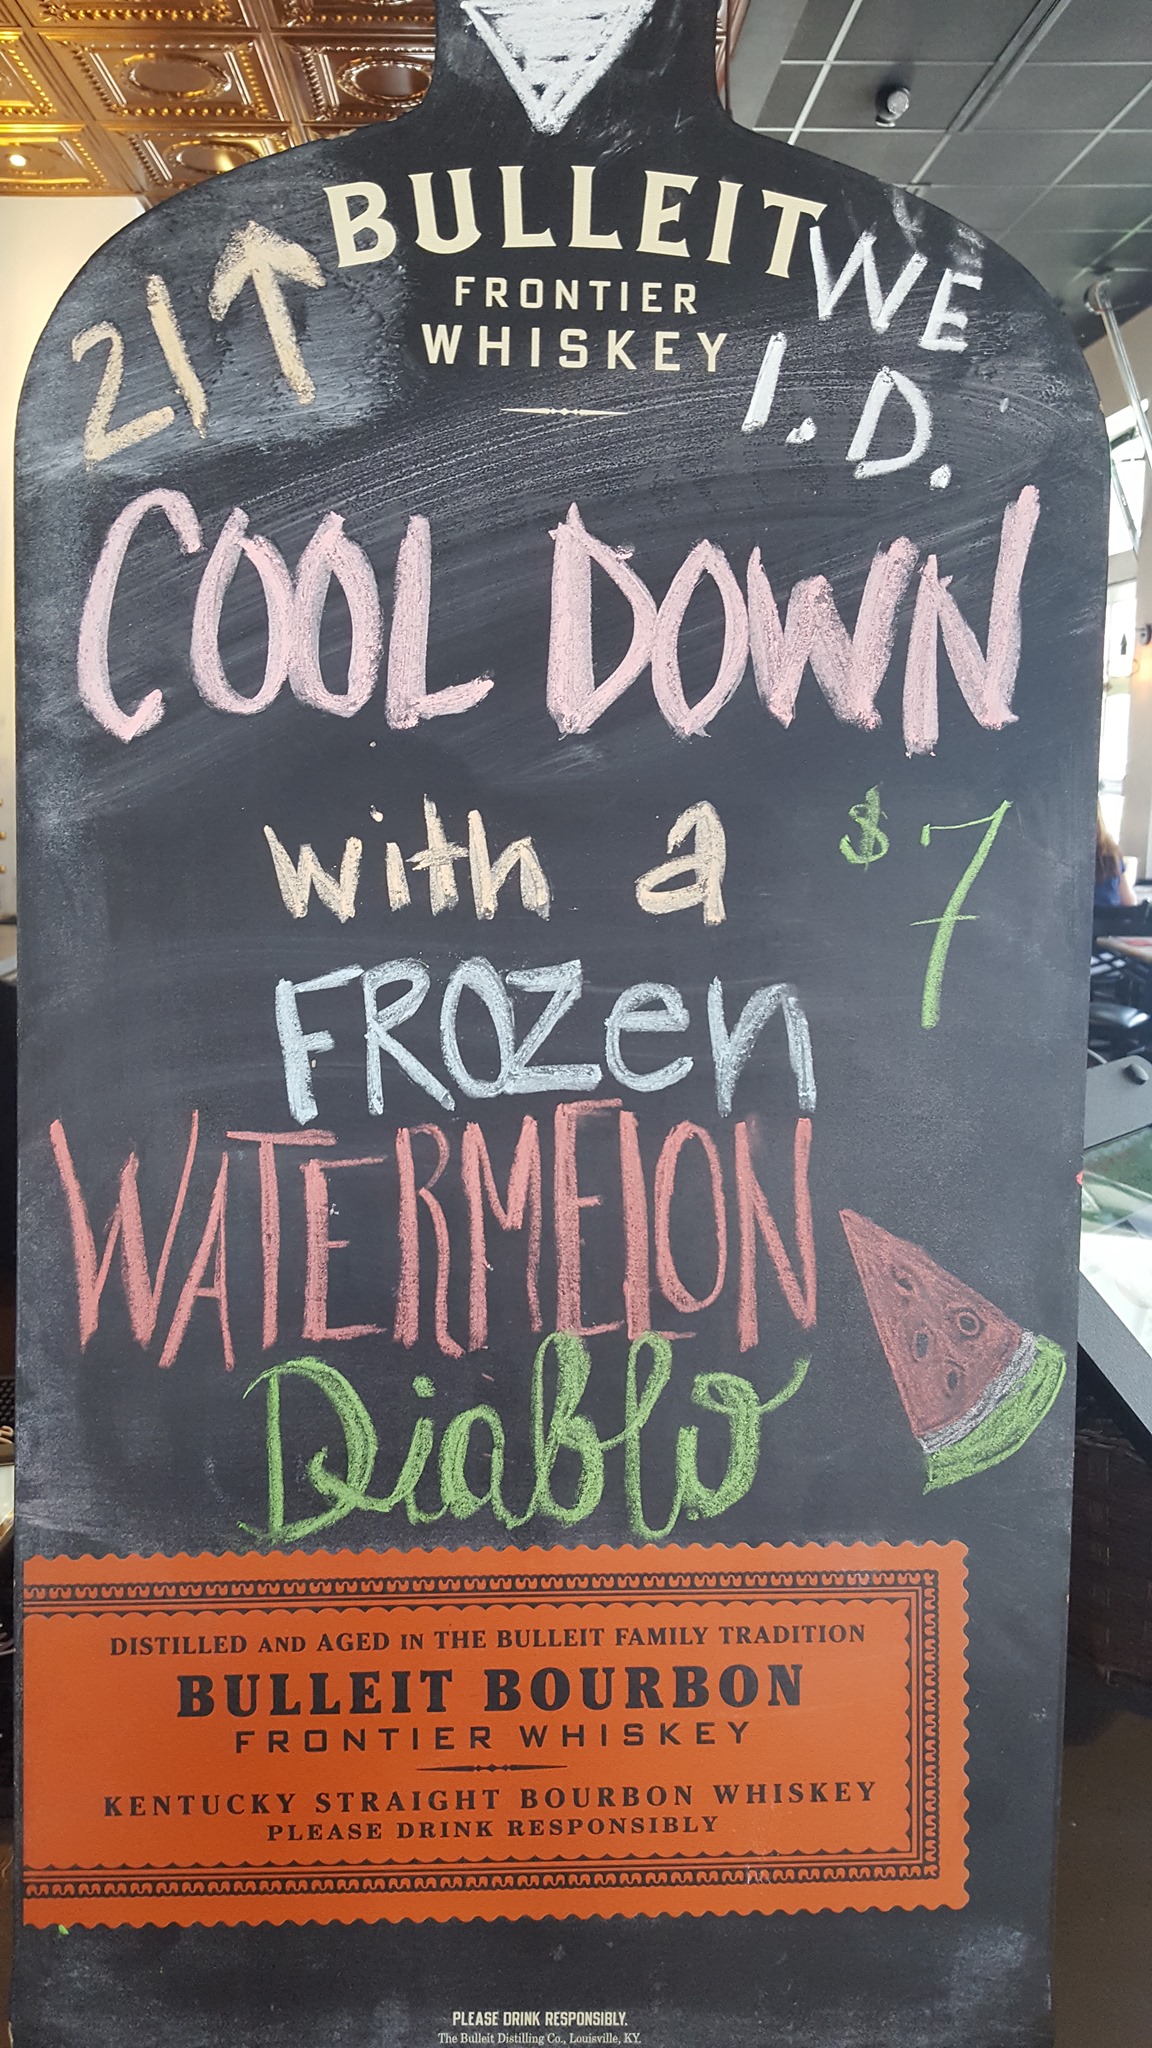 BULLEIT
FRONTIER
WHISKEY
21↑
WE
I.D.
COOL DOWN
with a
$7
FROZen
WATERMELON
Diablo
DISTILLED AND AGED IN THE BULLEIT FAMILY TRADITION
BULLEIT BOURBON
FRONTIER WHISKEY
KENTUCKY STRAIGHT BOURBON WHISKEY
PLEASE DRINK RESPONSIBLY
PLEASE DRINK RESPONSIBLY.
The Bulleit Distilling Co., Louisville, KY.